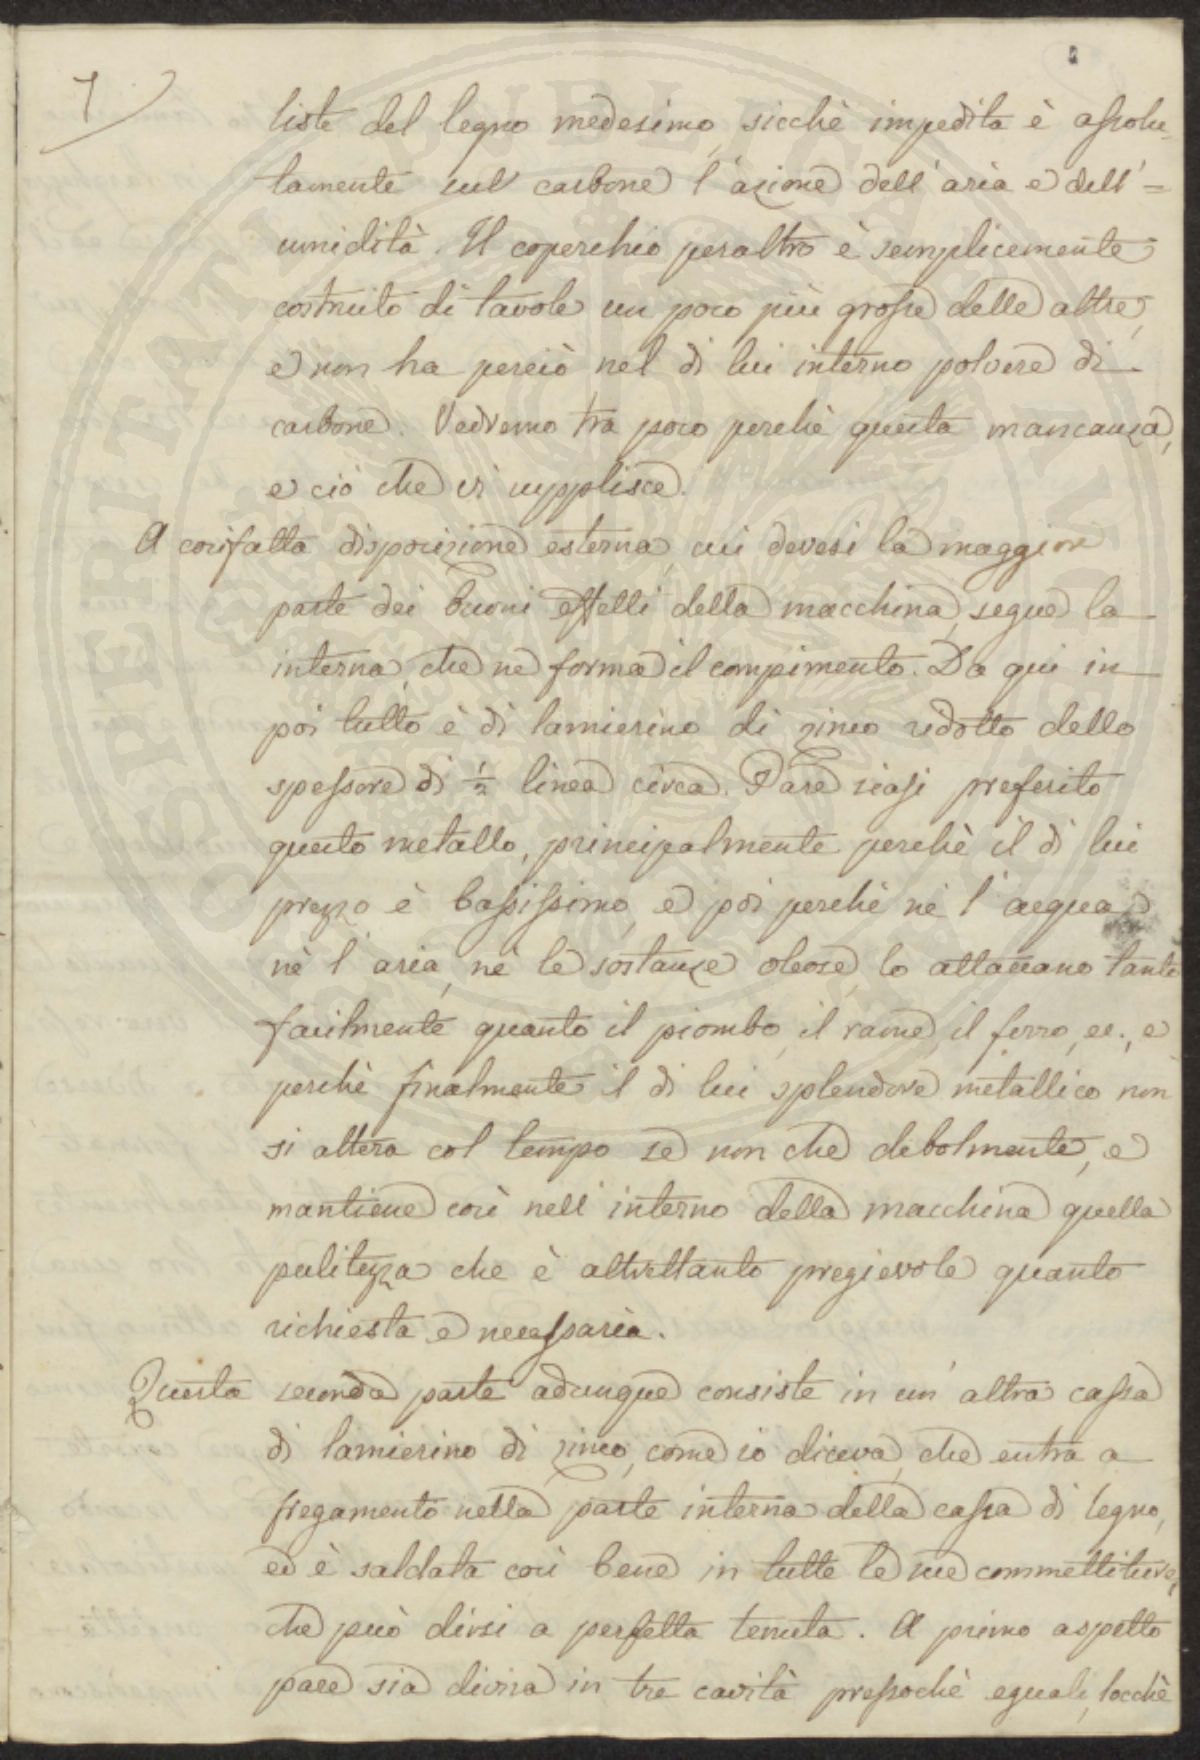 7
liste del legno medesimo, sicchè impedita è assolu-
tamente sul carbone l'azione dell'aria e dell'=
umidità. Il coperchio peraltro è semplicemente
costruito di tavole un poco più grosse delle altre,
e non ha perciò nel di lui interno polvere di
carbone. Vedremo tra poco perchè questa mancanza,
e ciò che vi supplisce.
A cosifatta disposizione esterna, cui devesi la maggior
parte dei buoni effetti della macchina, segue la
interna, che ne forma il compimento. Da qui in
poi tutto è di lamierino di zinco ridotto dello
spessore di ½ linea circa. Pare siasi preferito
questo metallo, principalmente perchè il di lui
prezzo è bassissimo, e poi perchè nè l'acqua,
nè l'aria, nè le sostanze oleose, lo attaccano tanto
facilmente quanto il piombo, il rame, il ferro, ec., e
perchè finalmente il di lui splendore metallico non
si altera col tempo se non che debolmente, e
mantiene così nell'interno della macchina quella
pulitezza che è altrettanto pregievole quanto
richiesta e necessaria.
Questa seconda parte adunque consiste in un'altra cassa
di lamierino di zinco, come io diceva, che entra a
fregamento nella parte interna della cassa di legno,
ed è saldata così bene in tutte le sue commettiture,
che può dirsi a perfetta tenuta. A primo aspetto
pare sia divisa in tre cavità pressochè eguali, locchè
OSPERITATI PUBLICAE